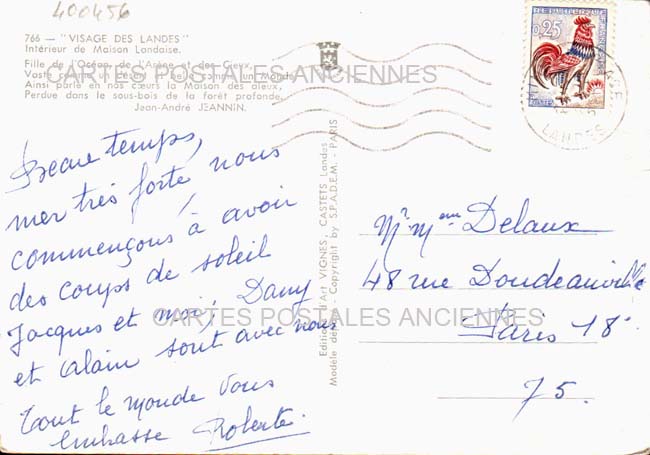 400456
766 — "VISAGE DES LANDES"
Intérieur de Maison Landaise.
Fille de l'Océan, de l'Arène et des Cieux,
Vaste comme un désert et belle comme un Monde,
Ainsi parle en nos cœurs la Maison des aïeux,
Perdue dans le sous-bois de la forêt profonde.
Jean-André JEANNIN.
CARTES POSTALES ANCIENNES
0,25
LANDES
Beau temps,
mer très forte, nous
commençons à avoir
des coups de soleil
Jacques et moi, Dany
et Alain sont avec nous
Tout le monde vous
embrasse Roberte
Editions d'Art VIGNES, CASTETS Landes
Modèle dé - Copyright by S.P.A.D.E.M. - PARIS
Mr Mme Delaux
48 rue Doudeauville
Paris 18e
75.
CARTES POSTALES ANCIENNES